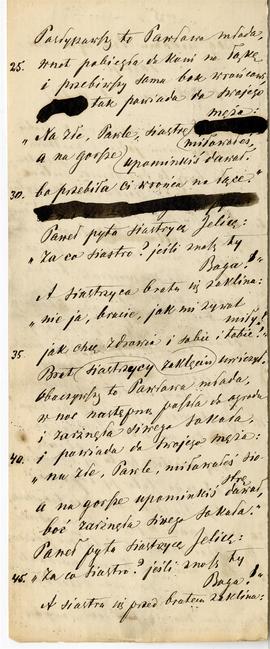 Posłyszawszy to Pawłowa młoda,
25. wnet pobiegła do koni na łąkę
i przebiwszy samą bok wrońcowi,
tak powiada do swojego
męża:
„Na złe, Pawle, siostrę
miłowałeś,
a na gorsze upominkiś dawał.
30. bo przebiła ci wrońca na łące."
Paweł pyta siostrzycę Jelicę:
„Za co siostro? jeśli znasz ty
Boga!"
A siostrzyca brata się zaklina:
„nie ja, bracie, jak mi żywot
miły!
jak chcę zdrowia i sobie i tobie!"
35. Brat siostrzycy zaklęciu uwierzył.
Obaczywszy to Pawłowa młoda,
w noc następną poszła do ogrodu
i zarznęła siwego sokoła,
i powiada do swojego męża:
40. „na złe, Pawle, miłowałeś sio
strę
a na gorsze upominkiś dawał,
boć zarznęła siwego sokoła."
Paweł pyta siostrzycę Jelicę:
„Za co siostro? jeśli znasz ty
45. Boga!"
A siostra się przed bratem zaklina: